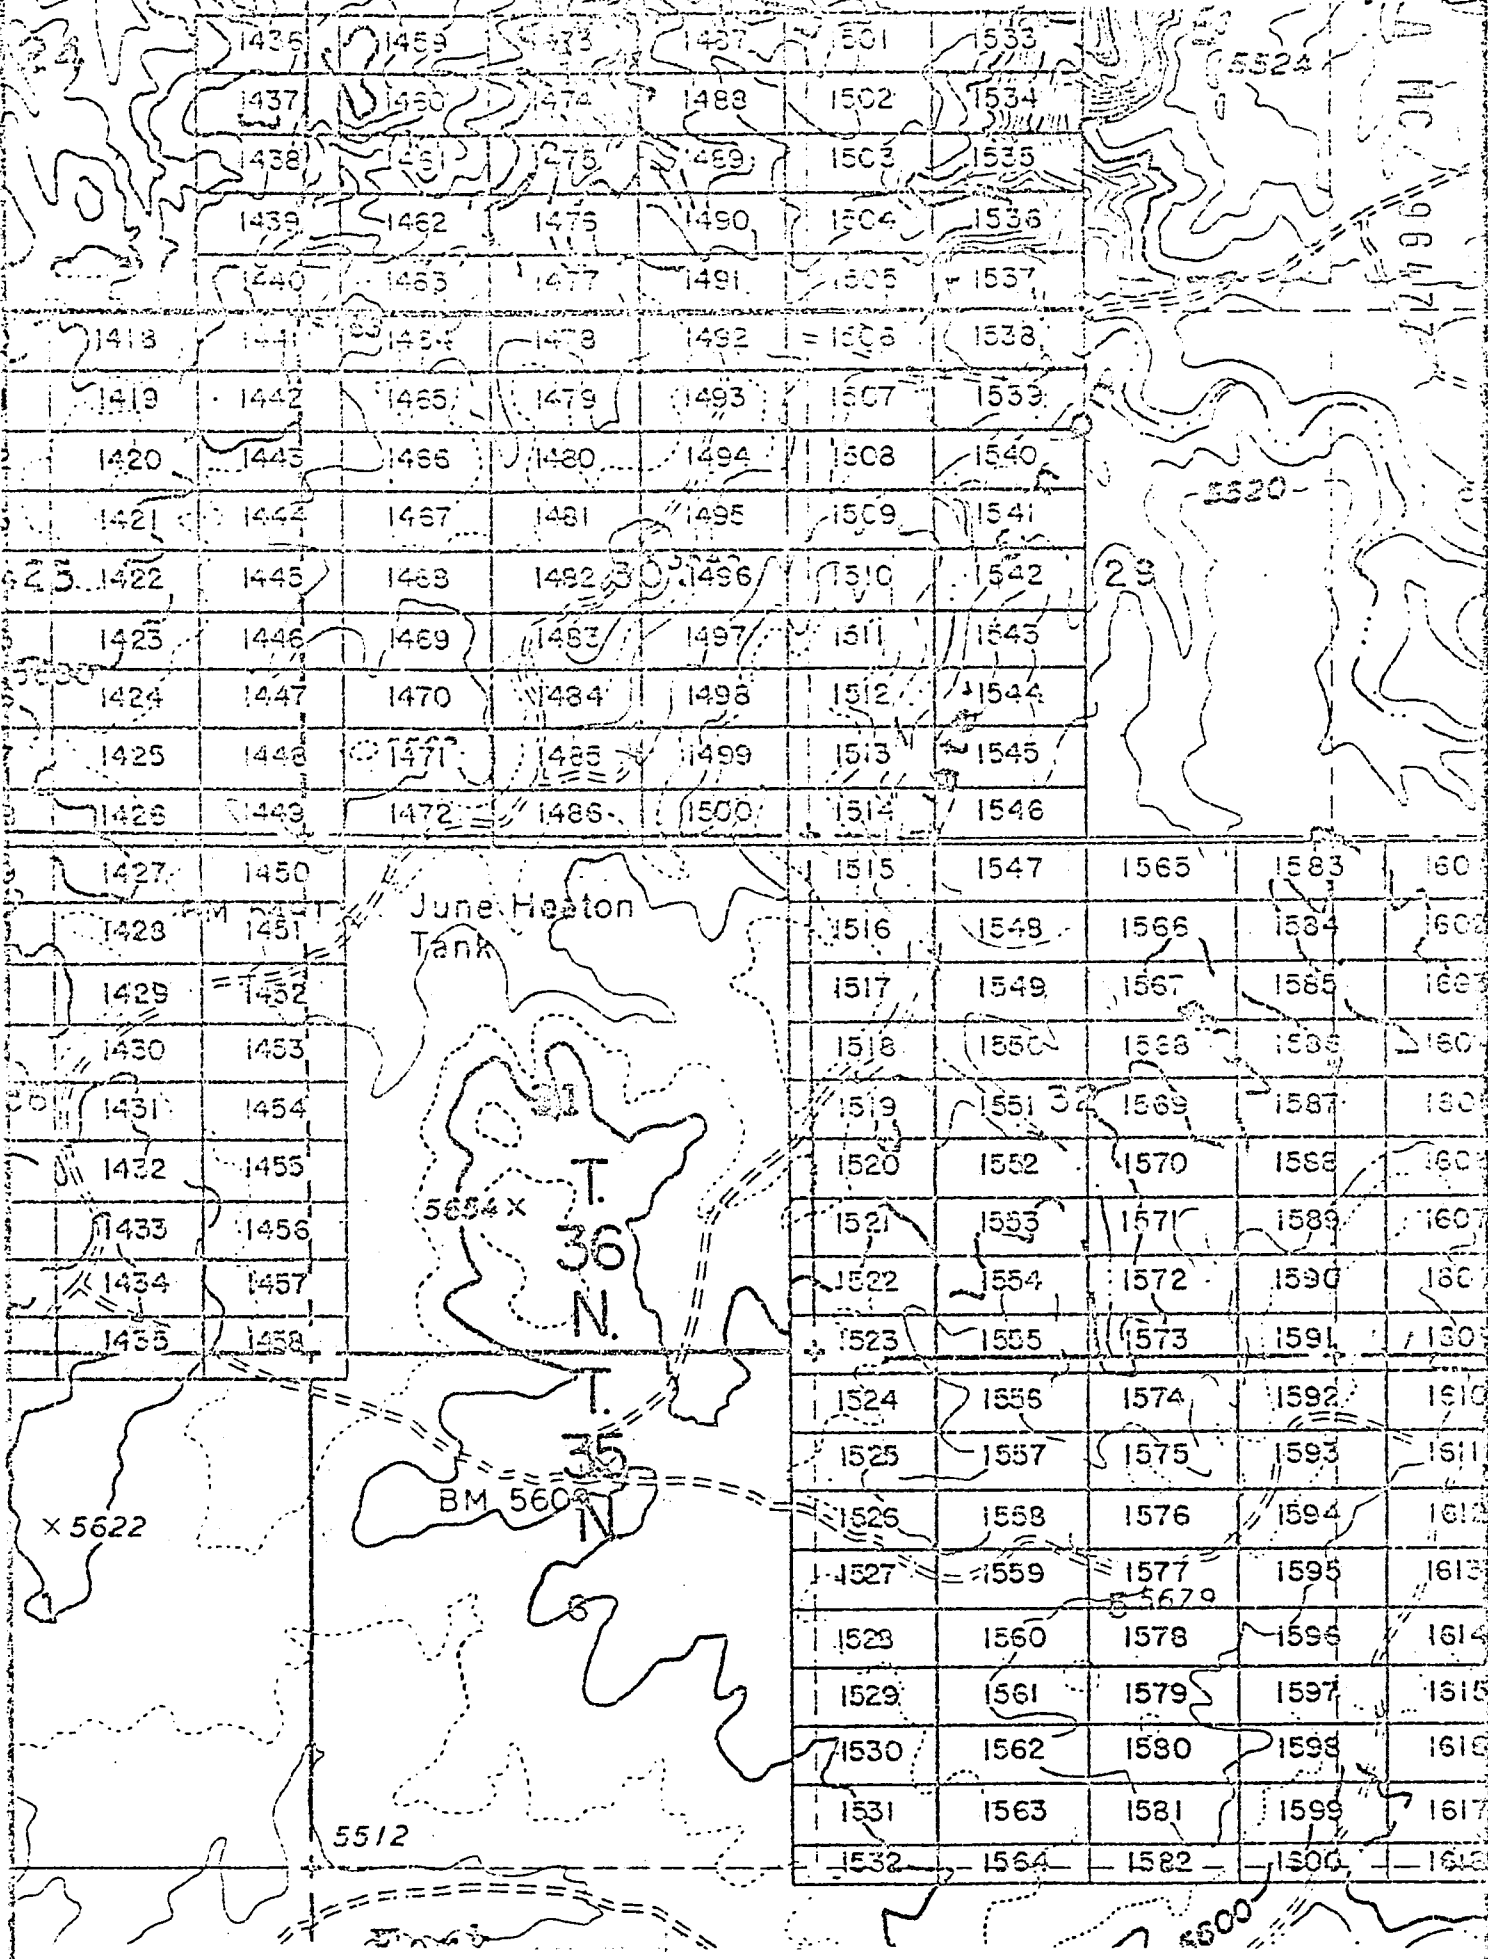 1436 1459 1473 1487 1501 1533
5524
1437 1460 1474 1488 1502 1534
MC 96417
1438 1461 1475 1489 1503 1535
1439 1462 1476 1490 1504 1536
1440 1463 1477 1491 1505 1537
1418 1441 1464 1478 1492 1506 1538
1419 1442 1465 1479 1493 1507 1539
1420 1443 1466 1480 1494 1508 1540
5520
1421 1444 1467 1481 1495 1509 1541
1422 1445 1468 1482 30 1496 1510 1542 29
1423 1446 1469 1483 1497 1511 1543
1424 1447 1470 1484 1498 1512 1544
1425 1448 1471 1485 1499 1513 1545
1426 1449 1472 1486 1500 1514 1546
1427 1450 1515 1547 1565 1583 160
June Heaton
Tank
1428 1451 1516 1548 1566 1584 1602
1429 1452 1517 1549 1567 1585 1603
1430 1453 1518 1550 1568 1586 160
36 1431 1454 31 1519 1551 32 1569 1587 160
1432 1455 1520 1552 1570 1588 160
T.
36
N.
5654 ×
1433 1456 1521 1553 1571 1589 1607
1434 1457 1522 1554 1572 1590 160
1435 1458 1523 1555 1573 1591 1609
T.
35
N
1524 1556 1574 1592 1610
1525 1557 1575 1593 1611
BM 560
× 5622
1526 1558 1576 1594 1612
1527 1559 1577 1595 1613
6 5 5679
1528 1560 1578 1596 1614
1529 1561 1579 1597 1615
1530 1562 1580 1598 1616
1531 1563 1581 1599 1617
5512
1532 1564 1582 1600 1618
5600